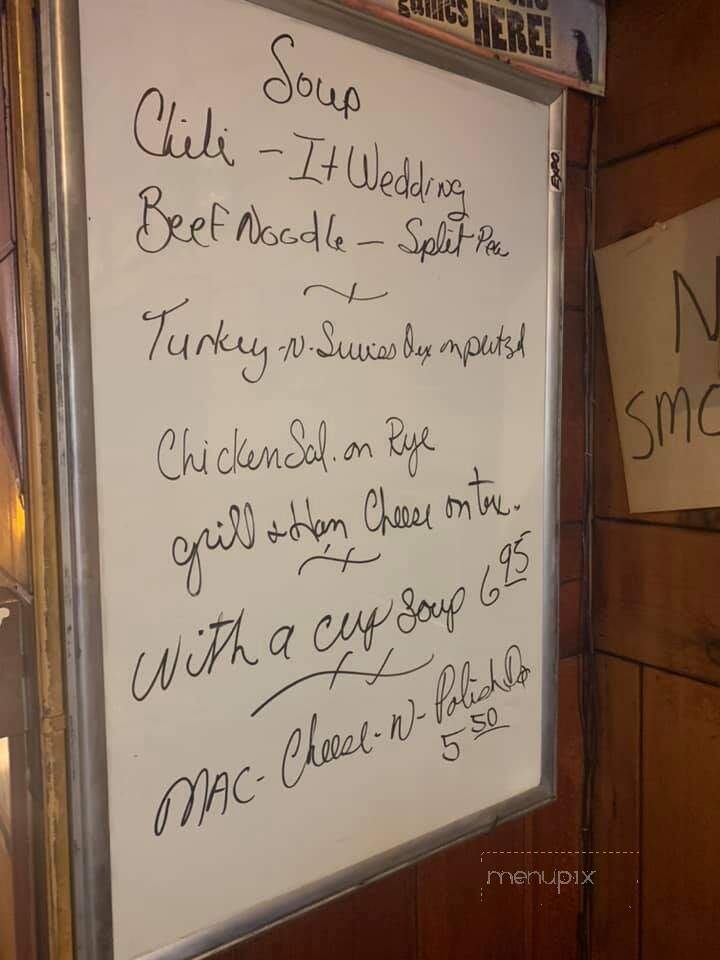 games HERE!
Soup
Chili - It Wedding
Beef Noodle - Split Pea
EXPO
Turkey -N- Swiss on pretzel
N
SMO
Chicken Sal. on Rye
grill Ham Cheese on
With a cup Soup 6 95
MAC - Cheese - N - Polish
5 50
menupix